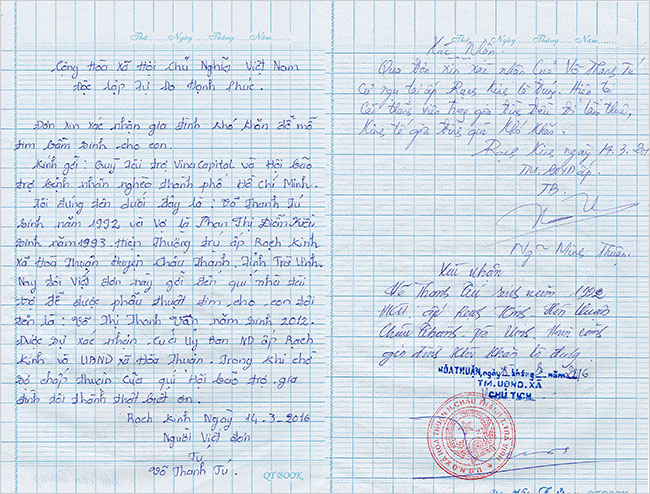 Thứ......Ngày......Tháng......Năm......
Cộng Hòa Xã Hội Chủ Nghĩa Việt Nam
Độc lập Tự Do Hạnh Phúc.
Đơn xin xác nhận gia đình khó khăn để mổ
tim bẩm sinh cho con.
Kính gởi: Quỹ Tài trợ VinaCapital và Hội bảo
trợ bệnh nhân nghèo thành phố Hồ Chí Minh.
Tôi đứng đơn dưới đây là: Võ Thanh Tú
Sinh năm 1992 và Vợ là Phan Thị Diễm Kiều
Sinh năm 1993. Hiện Thường trụ ấp Rạch Kinh
Xã Hòa Thuận Huyện Châu Thành, Tỉnh Trà Vinh.
Nay tôi Viết đơn này gởi đến quí nhà tài
trợ để được phẩu thuật tim cho con tôi
tên là: Võ Thị Thanh Vân năm sinh 2012.
Được sự xác nhận của Uỷ Ban ND ấp Rạch
Kinh và UBND xã Hòa Thuận. Trong khi chờ
đợi chấp thuận của quí Hội bảo trợ, gia
đình tôi thành thật biết ơn.
Rạch Kinh Ngày 14-3-2016
Người Viết đơn
Tú
Võ Thanh Tú.
QTBOOK
Thứ......Ngày......Tháng......Năm......
Xác Nhận
Qua Đơn xin xác nhận Của Võ Thanh Tú
Có ngụ tại ấp Rạch Kinh là đúng. Hiện tại
Các thành viên trong gia đình đều đi làm thuê,
Kinh tế gia đình quá khó khăn.
Rạch Kinh, ngày 14.3.201
TM. BND ấp.
TB.
Ng~ Minh Thuận
Xác nhận
Võ Thanh Tú sinh năm 1992
Châu Thành
gia đình khó khăn là đúng.
HÒA THUẬN, ngày tháng năm 2016
TM. UBND. XÃ
CHỦ TỊCH
U.B.N.D XÃ HÒA THUẬN H. CHÂU THÀNH T. TRÀ VINH